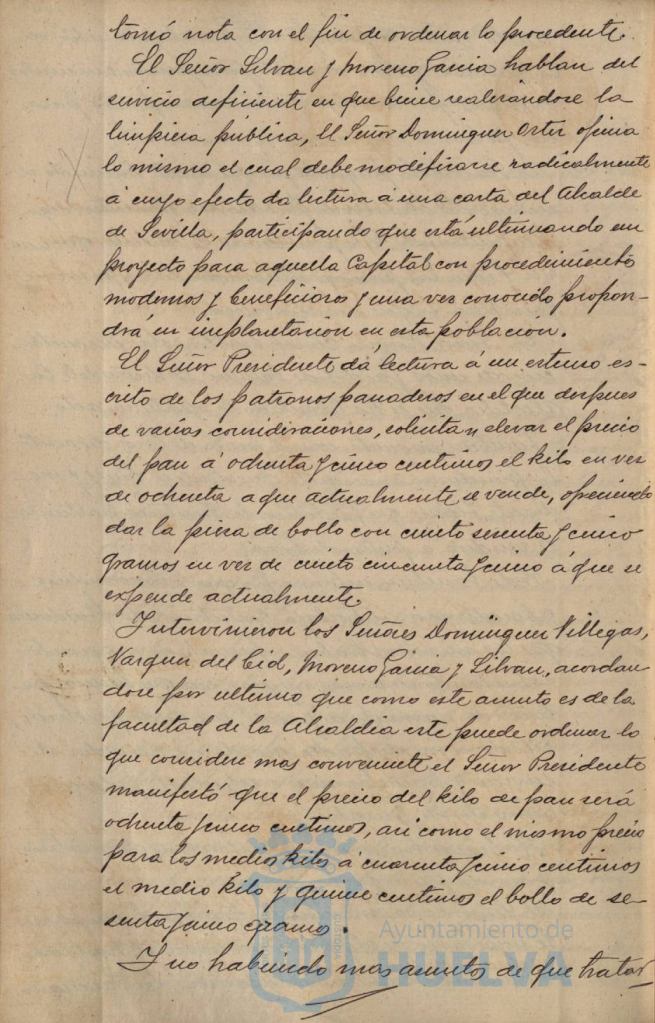 tomó nota con el fin de ordenar lo procedente.
El Señor Silvan y Moreno Garcia hablan del
servicio deficiente en que biene realizandose la
limpieza pública, el Señor Dominguez Ortiz opina
lo mismo el cual debe modificarse radicalmente
á cuyo efecto da lectura á una carta del Alcalde
de Sevilla, participando que está ultimando un
proyecto para aquella Capital con procedimiento
modernos y beneficiosos y una vez conocido propon-
drá su implantación en esta población.
El Señor Presidente dá lectura á un extenso es-
crito de los patronos panaderos en el que despues
de varias consideraciones, solicitan elevar el precio
del pan á ochenta y cinco centimos el kilo en vez
de ochenta a que actualmente se vende, ofreciendo
dar la pieza de bollo con ciento sesenta y cinco
gramos en vez de ciento cincuenta y cinco á que se
expende actualmente.
Intervinieron los Señores Dominguez Villegas,
Vazquez del Cid, Moreno Garcia y Silvan, acordan
dose por ultimo que como este asunto es de la
facultad de la Alcaldia este puede ordenar lo
que considere mas conveniente el Señor Presidente
manifestó que el precio del kilo de pan será
ochenta y cinco centimos, asi como el mismo precio
para los medios kilos á cuarenta y cinco centimos
el medio kilo y quince centimos el bollo de se-
senta y cinco gramos.
Y no habiendo mas asuntos de que tratar
Ayuntamiento de
HUELVA